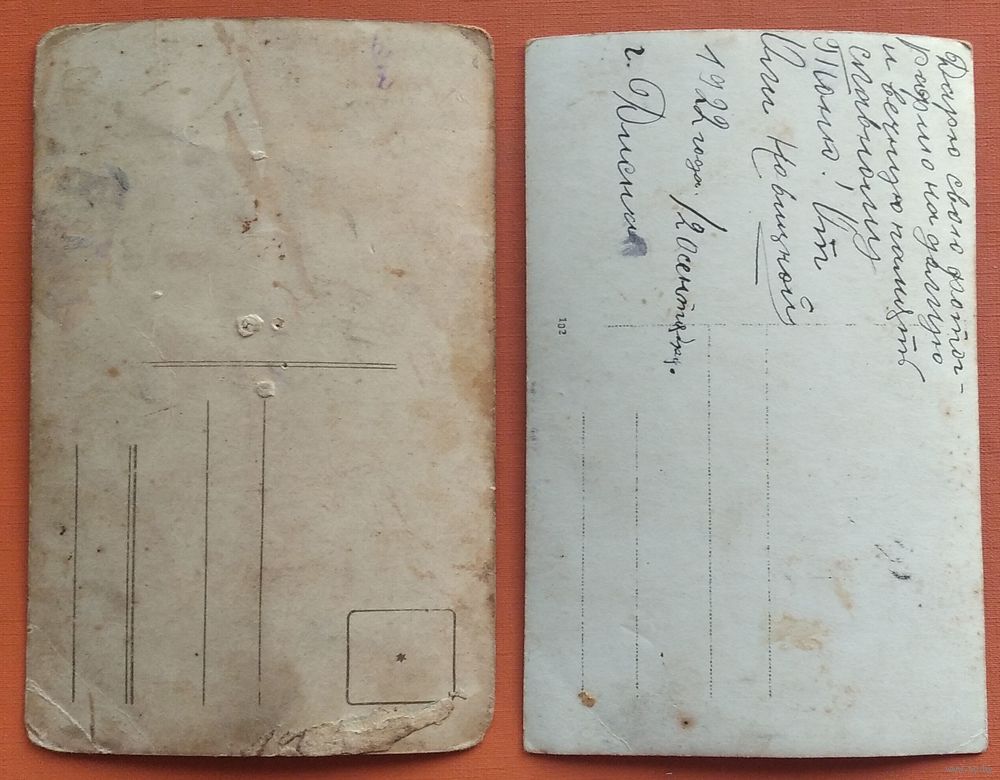 Дарю свою фотог-
рафию на долгую
и вечную память
славному
Толю! От
Или Новицкой
1922 года. 12 сентября.
г. Дисна
102